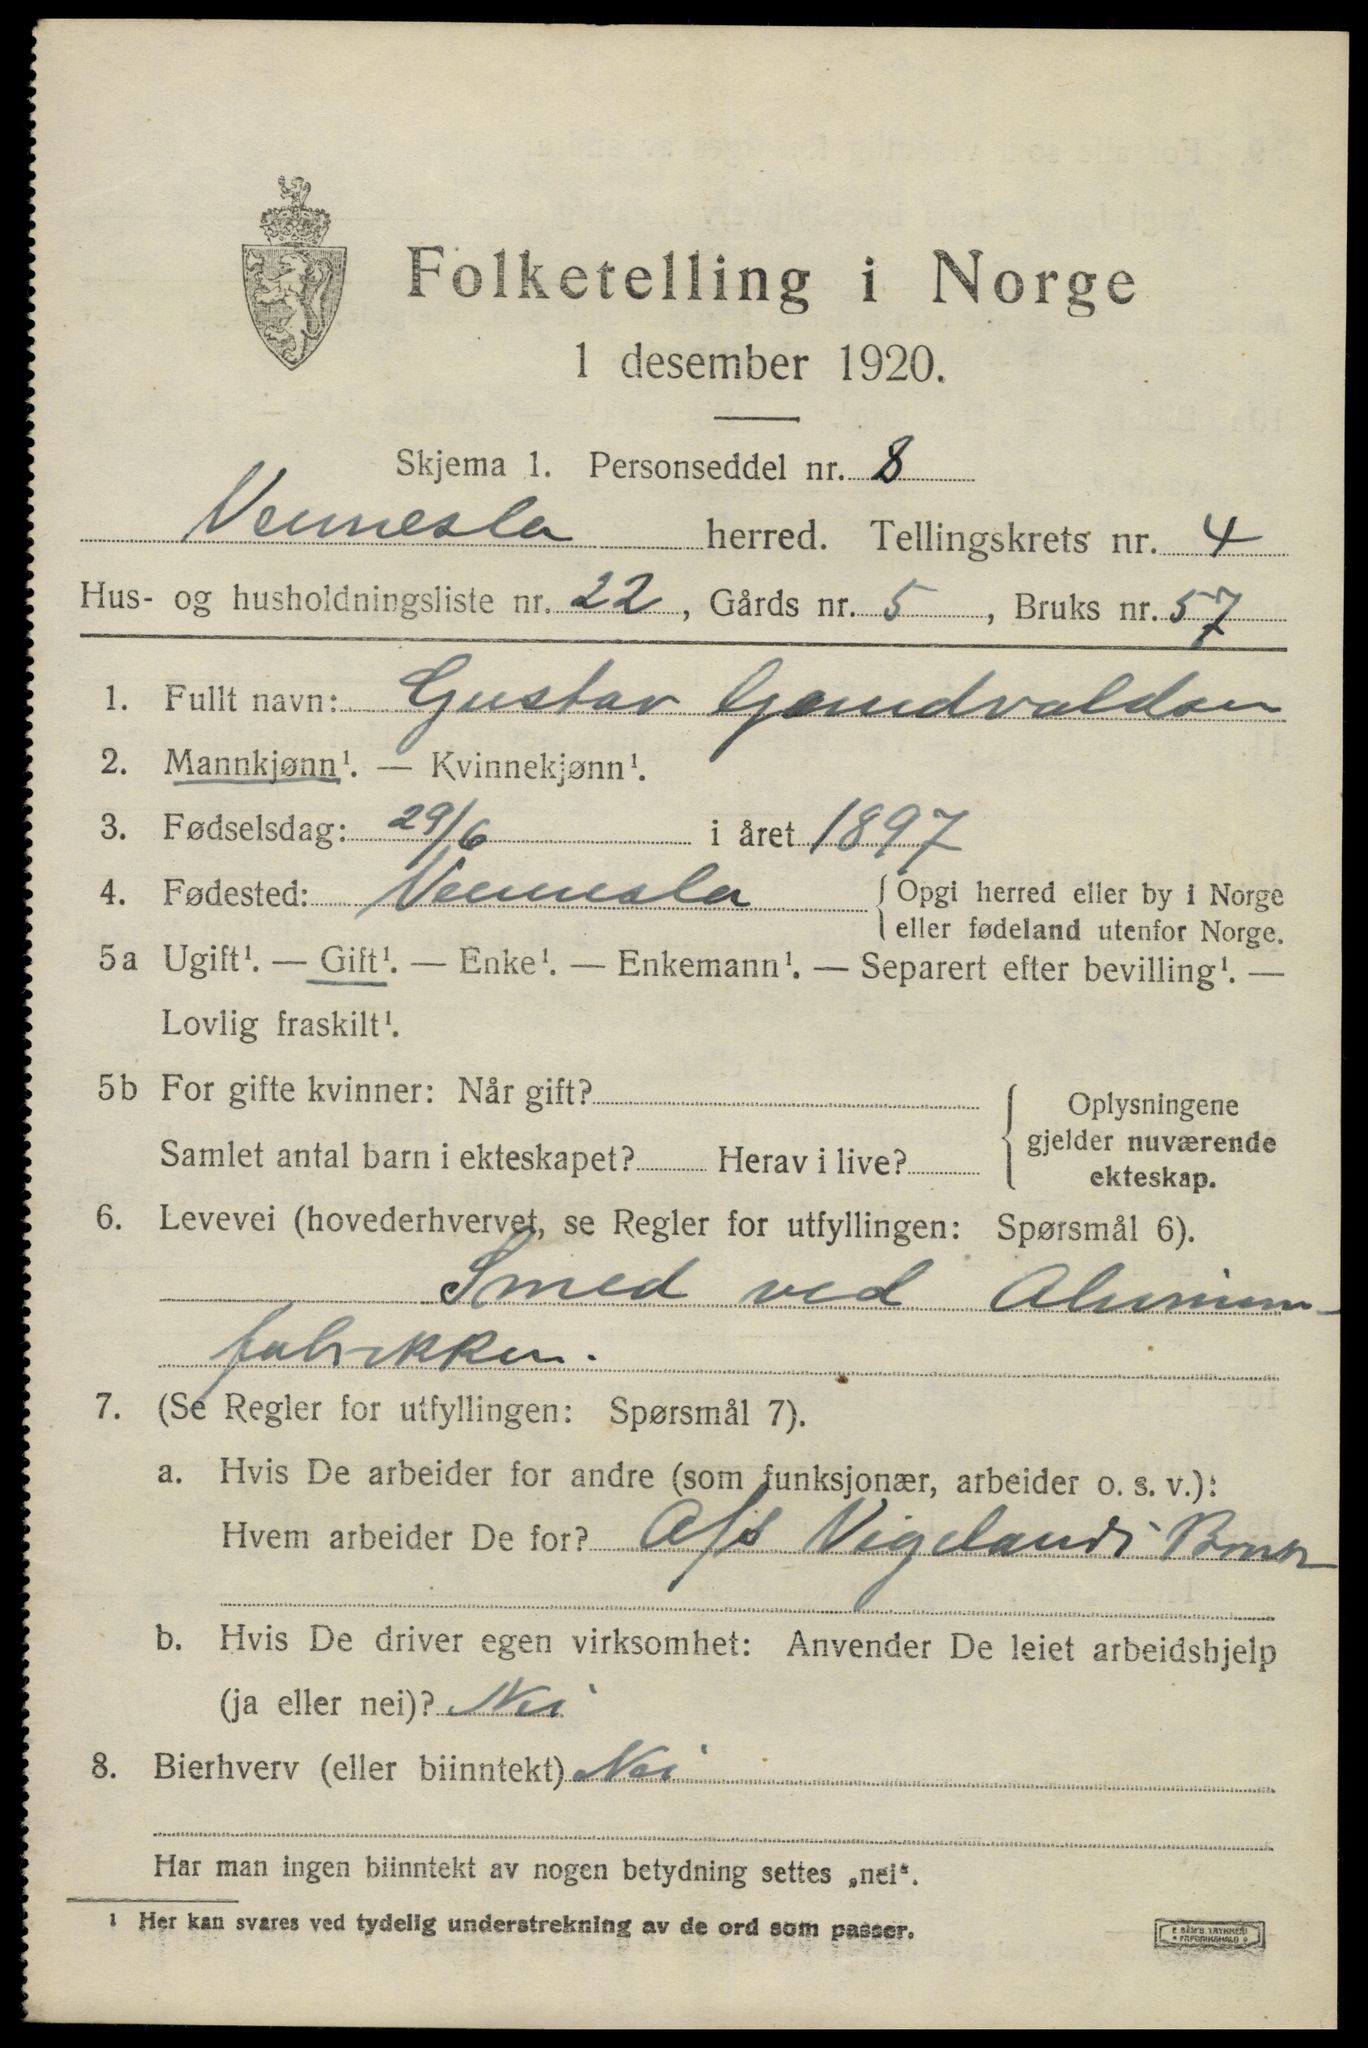 Folketelling i Norge
1 desember 1920.
Skjema 1. Personseddel nr. 8
Vennesla herred. Tellingskrets nr. 4
Hus- og husholdningsliste nr. 22, Gårds nr. 5, Bruks nr. 57
1. Fullt navn: Gustav
2. Mannkjønn¹. — Kvinnekjønn¹.
3. Fødselsdag: 29/6 i året 1897
4. Fødested: Vennesla { Opgi herred eller by i Norge
eller fødeland utenfor Norge.
5a Ugift¹. — Gift¹. — Enke¹. — Enkemann¹. — Separert efter bevilling¹. —
Lovlig fraskilt¹.
5b For gifte kvinner: Når gift? { Oplysningene
gjelder nuværende
Samlet antal barn i ekteskapet? Herav i live?
ekteskap.
6. Levevei (hovederhvervet, se Regler for utfyllingen: Spørsmål 6).
Smed ved Aluminium-
fabrikken.
7. (Se Regler for utfyllingen: Spørsmål 7).
a. Hvis De arbeider for andre (som funksjonær, arbeider o. s. v.):
Hvem arbeider De for? A/S Vigelands Bruk
b. Hvis De driver egen virksomhet: Anvender De leiet arbeidshjelp
(ja eller nei)? Nei
8. Bierhverv (eller biinntekt) Nei
Har man ingen biinntekt av nogen betydning settes „nei“.
¹ Her kan svares ved tydelig understrekning av de ord som passer.
SEM'S TRYKKERI
FREDRIKSHALD